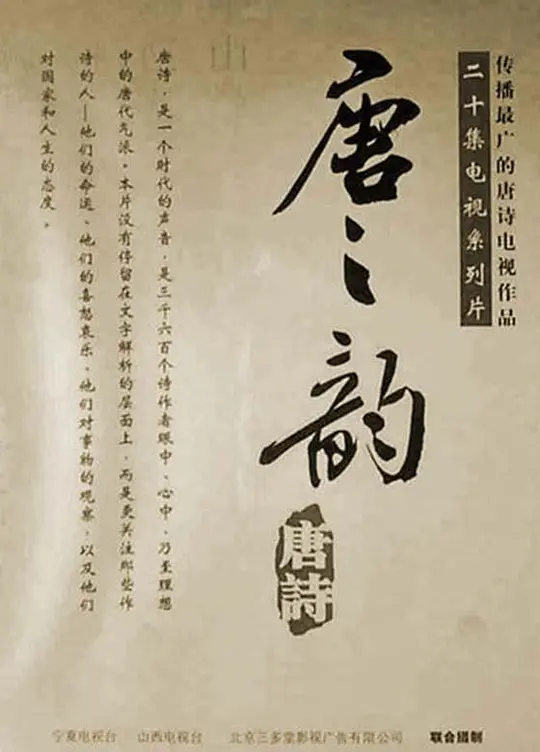 传播最广的唐诗电视作品
二十集电视系列片
唐之韵
唐詩
唐诗，是一个时代的声音，是三千六百个诗作者眼中、心中、乃至理想
中的唐代气派。本片没有停留在文字解析的层面上，而是更关注那些作
诗的人—他们的命运、他们的喜怒哀乐、他们对事物的观察，以及他们
对国家和人生的态度。
山
宁夏电视台 山西电视台 北京三多堂影视广告有限公司 联合摄制